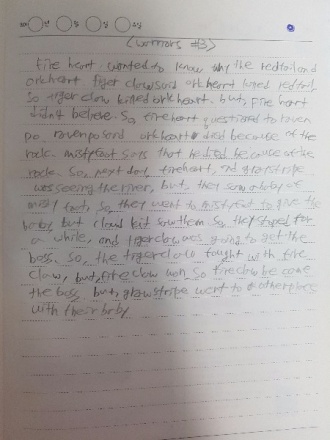 (warriors #3)
Fire heart wanted to know why the redtail and
orkheart tiger claw said orkheart killed redtail,
So tiger claw killed orkheart. but, Fire heart
didn't believe. So, fireheart questioned to raven
po, ravenpo said orkheart died because of the
rock. mistyfeat says that he died because of the
rock. So, next day, fireheart, and graystripe
was seeing the river, but, they saw a baby of
misty feat, so they went to mistyfeat to give the
baby, but cloud saw them So, they stoped for
a while, and tigerclaw was going to get the
boss. So, the tiger claw fought with fire
claw, but, fire claw won So fire claw be come
the boss but, graystripe went to other place
with their baby